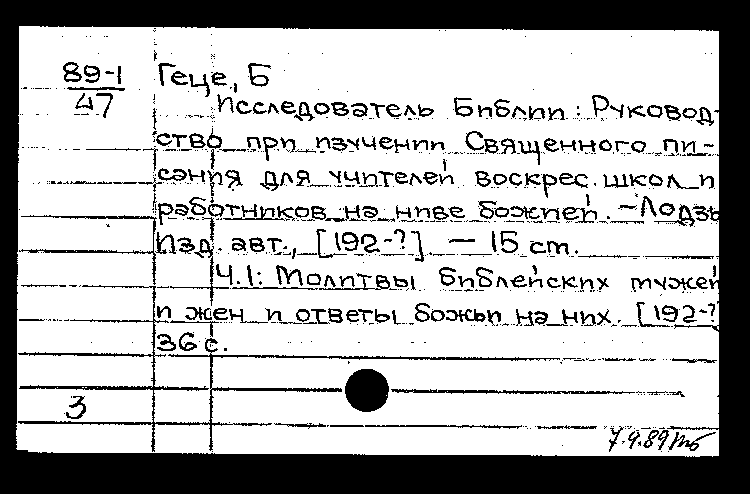 89-1 Геце, Б
47 Исследователь Библии: Руковод-
ство при изучении Священного пи-
сания для учителей воскрес. школ и
работников на ниве божией. - Лодзь
Изд. авт., [192-?] — 15 cm.
Ч.1: Молитвы библейских мужей
и жен и ответы божьи на них. [192-?]
36 с.
3
7.9.89